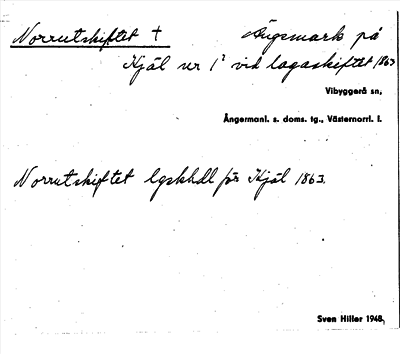 Norrutskiftet † Ängsmark på
Kjäl nr 1² vid lagaskiftet 1863
Vibyggerå sn,
Ångermanl. s. doms. tg., Västernorrl. l.
Norrutskiftet lgskhdl för Kjäl 1863.
Sven Hiller 1948,